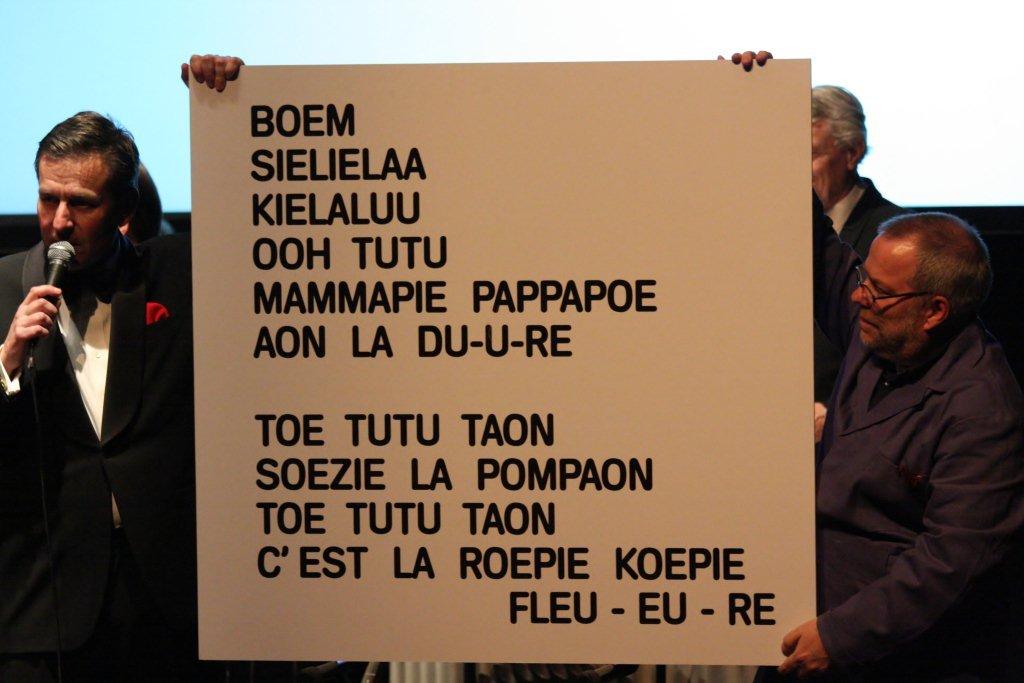 BOEM
SIELIELAA
KIELALUU
OOH TUTU
MAMMAPIE PAPPAPOE
AON LA DU-U-RE
TOE TUTU TAON
SOEZIE LA POMPAON
TOE TUTU TAON
C'EST LA ROEPIE KOEPIE
FLEU - EU - RE